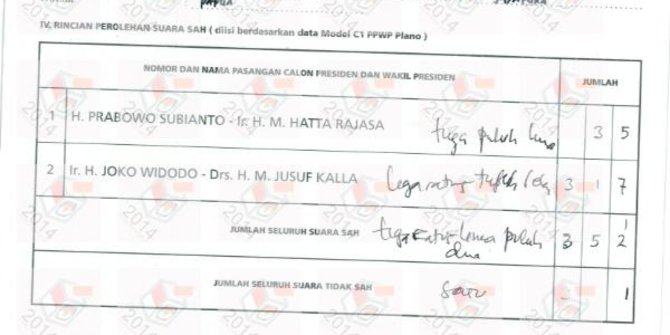 PAPUA
IV. RINCIAN PEROLEHAN SUARA SAH ( diisi berdasarkan data Model C1 PPWP Plano )
NOMOR DAN NAMA PASANGAN CALON PRESIDEN DAN WAKIL PRESIDEN JUMLAH
1 H. PRABOWO SUBIANTO - Ir. H. M. HATTA RAJASA tiga puluh lima 3 5
2 Ir. H. JOKO WIDODO - Drs. H. M. JUSUF KALLA 3 1 7
JUMLAH SELURUH SUARA SAH tiga ratus lima puluh 3 5 2
dua
JUMLAH SELURUH SUARA TIDAK SAH satu - 1
2014